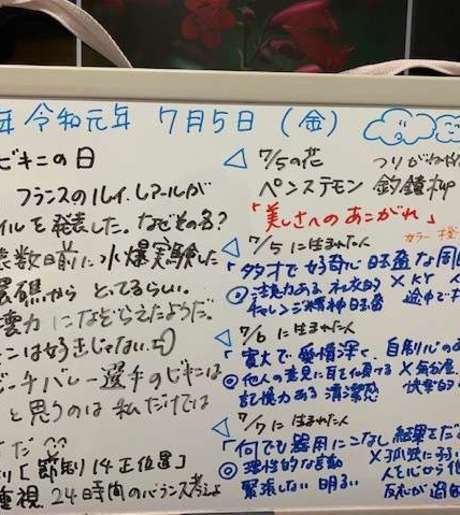 年 令和元年 7月5日 (金)
ビキニの日
フランスのルイ.レアールが
イルを発表した。なぜその名?
数日前に水爆実験した
礁からとってるらしい。
威力になぞらえたようだ。
こは好きじゃない.
ビーチバレー選手のビキニは
と思うのは私だけでは
だ
[節制14正位置]
重視.24時間のバランス考えよ
◁ 7/5の花 つりがねやなぎ
ペンステモン 釣鐘柳
「美しさへのあこがれ」
◁ 7/5に生まれた人 カラー
「多才で好奇心旺盛な周囲
◎注意力ある 社交的 × KY
チャレンジ精神旺盛 途中で
◁ 7/6に生まれた人
「寛大で愛情深く.自制心の
◎他人の意見に耳を傾ける ×
記憶力ある 清潔感 快楽的
◁ 7/7に生まれた人
「何でも器用にこなし結果をだ
◎理性的な言動 ×孤独に弱い
緊張しない 明るい 人を心から